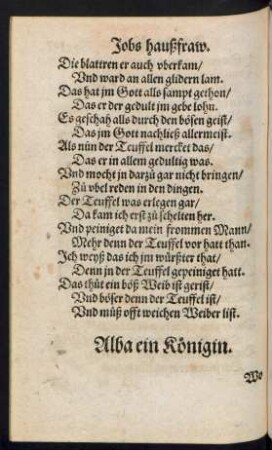 Jobs haußfraw.
Die blattren er auch vberkam/
Vnd ward an allen glidern lam.
Das hat jm Gott alls sampt gethon/
Das er der gedult jm gebe lohn.
Es geschah alls durch den bösen geist/
Das jm Gott nachließ allermeist.
Als nůn der Teuffel mercket das/
Das er in allem gedultig was.
Vnd mocht jn darzů gar nicht bringen/
Zů vbel reden in den dingen.
Der Teuffel was erlegen gar/
Da kam ich erst zů schelten her.
Vnd peiniget da mein frommen Mann/
Mehr denn der Teuffel vor hatt than.
Ich weyß das ich jm würßter that/
Denn jn der Teuffel gepeiniget hatt.
Das thůt ein böß Weib ist gerist/
Vnd böser denn der Teuffel ist/
Vnd můß offt weichen Weiber list.
Alba ein Königin.
We